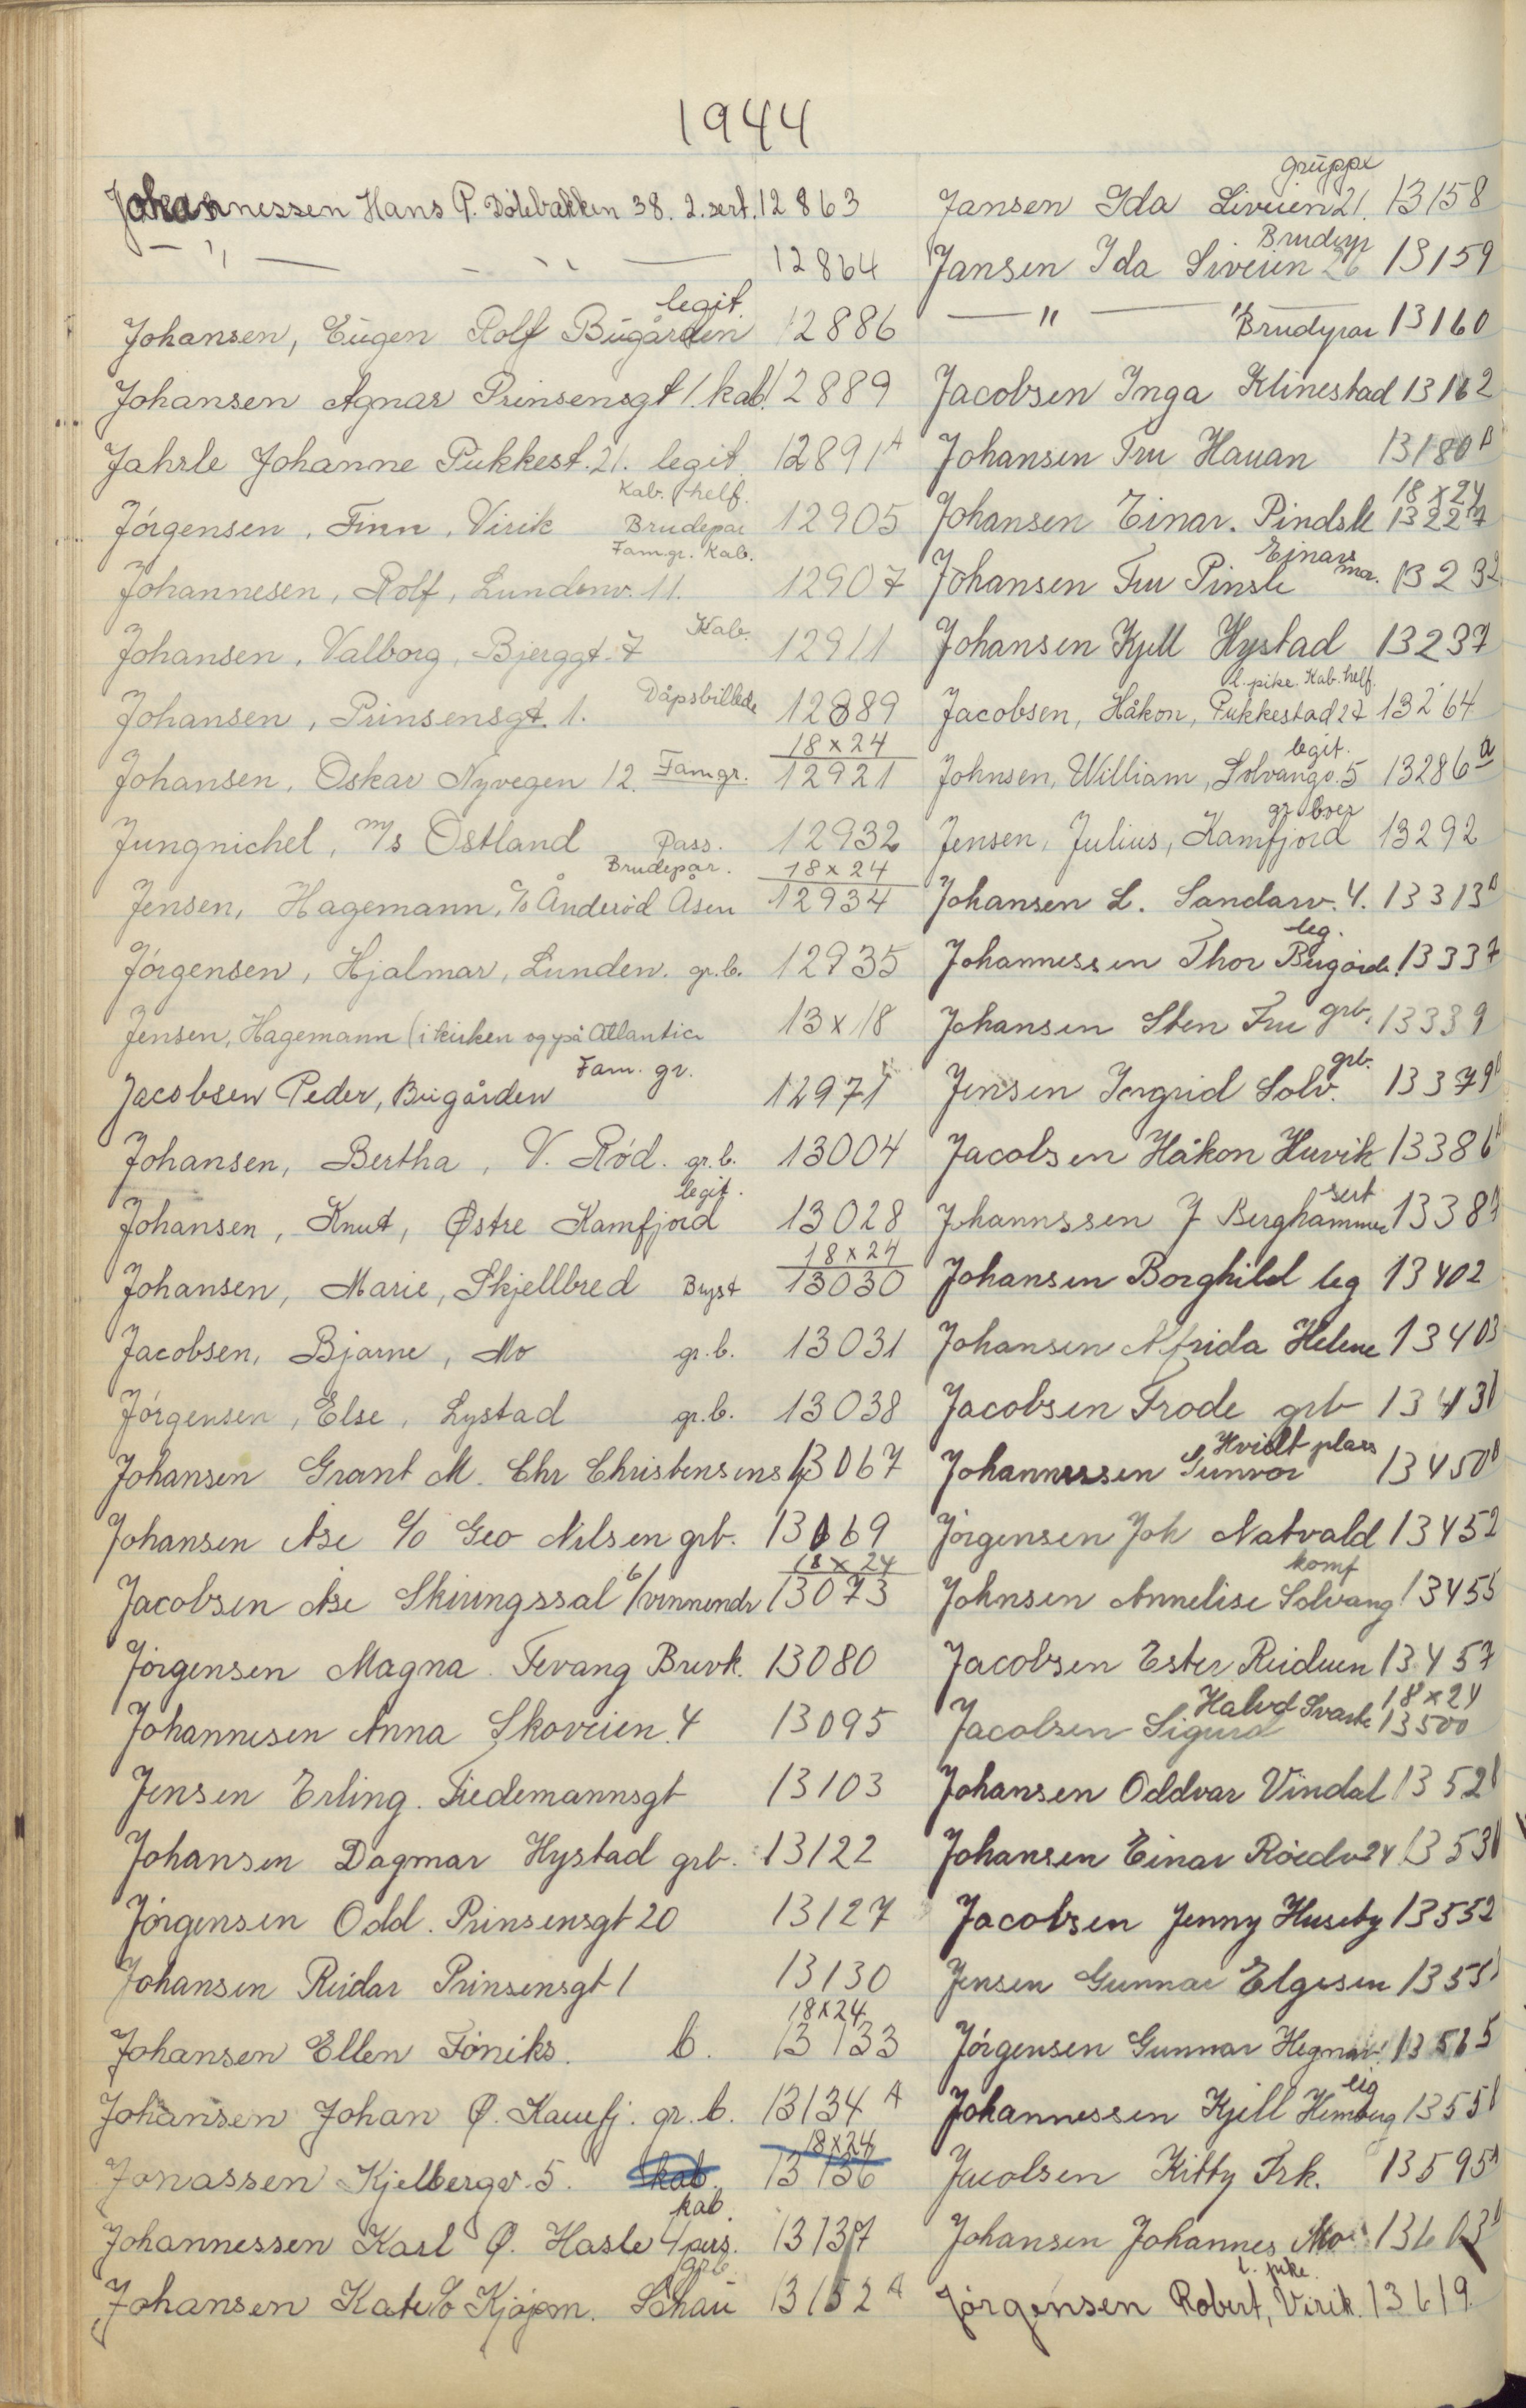 1944
Johannessen Hans P. Dölebakken 38. 2. sert. 12863
— " — — " — 12864
legit.
Johansen, Eugen Rolf Bugården 12886
Johansen Agnar Prinsensgt 1. kab. 12889
Jahrle Johanne Pukkest. 21. legit. 12891A
Kab. helf.
Jörgensen, Finn, Virik Brudepar 12905
Famgr. Kab.
Johannesen, Rolf, Lundenv. 11. 12907
Kab.
Johansen, Valborg, Bjerggt. 7 12911
Johansen, Prinsensgt. 1. Dåpsbillede 12889
18x24
Johansen, Oskar Nyvegen 12. Famgr. 12921
Jungnichel, m/s Ostland Pass. 12932
Brudepar. 18x24
Jensen, Hagemann, % Ånderöd Åsen 12934
Jörgensen, Hjalmar, Lunden. gr.b. 12935
Jensen, Hagemann (i kirken og på Atlantic 13x18
Fam. gr.
Jacobsen Peder, Bugården 12971
Johansen, Bertha, V. Röd. gr.b. 13004
legit.
Johansen, Knut, Østre Kamfjord 13028
18x24
Johansen, Marie, Skjellbred Bryst 13030
Jacobsen, Bjarne, Mo gr.b. 13031
Jörgensen, Else, Lystad gr.b. 13038
Johansen Grant M. Chr Christensensg 13067
Johansen Åse c/o Geo Nilsen grb. 13069
18x24
Jacobsen Åse Skiringssal b/vinnendr 13073
Jörgensen Magna. Fevang Brevk. 13080
Johannesen Anna Skoveien. 4 13095
Jensen Erling. Tiedemannsgt 13103
Johansen Dagmar Hystad grb. 13122
Jörgensen Odd. Prinsensgt 20 13127
Johansen Reidar Prinsensgt 1 13130
18x24
Johansen Ellen Föniks. b. 13133
Johansen Johan Ø. Kamfj. gr.b. 13134 A
18x24
Jonassen Kjelbergv. 5. kab. 13136
kab.
Johannessen Karl Ø. Hasle 4 pers. 13137
grb
Johansen Kate % Kjöpm. Schau 13152 A
gruppe
Jansen Ida Liveien 21. 13158
Brudep
Jansen Ida Liveien 26 13159
— " — " Brudepar 13160
Jacobsen Inga Klinestad 13162
Johansen Fru Hauan 13180A
18x24
Johansen Einar. Pindsle 13227
Einars mor.
Johansen Fru Pinsle 13232
Johansen Kjell Hystad 13237
l. pike. Kab. helf.
Jacobsen, Håkon, Pukkestad 27 13264
legit.
Johnsen, William, Solvangv. 5 13286a
gr. bver
Jensen, Julius, Kamfjord 13292
Johansen L. Sandarv. 4. 13313A
leg.
Johannessen Thor Bugårde. 13337
Johansen Sten Fru grb. 13339
grb.
Jensen Ingrid Solv. 13379
Jacobsen Håkon Huvik 13386
sert
Johannssen J Berghammer 1338
Johansen Borghild leg 13402
Johansen Alfrida Helene 13403
Jacobsen Frode grb 13431
Hvidt plass
Johannessen Gunvor 13450
Jörgensen Joh Natvald 13452
komf
Johnsen Annelise Solvang 13455
Jacobsen Ester Reidun 13457
Halvd Svarte 18x24
Jacobsen Sigurd 13500
Johansen Oddvar Vindal 1352
Johansen Einar Röedv 24 1353
Jacobsen Jenny Huseby 13552
Jensen Gunnar Elgesem 1355
Jörgensen Gunnar 13565
leg
Johannessen Kjell Hemberg 1355
Jacobsen Kitty Frk. 13595A
Johansen Johannes Mo 13603
l. pike.
Jörgensen Robert, Virik. 13619